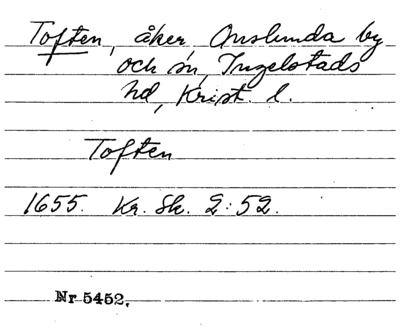 Toften, åker, Onslunda by
och sn, Ingelstads
hd, Krist. l.
Toften
1655. Kr. Sk. 2:52.
Nr 5452.